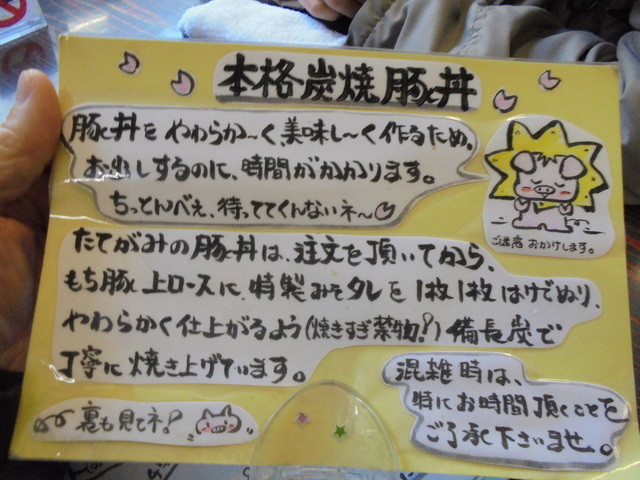 本格炭焼豚丼
豚丼をやわらか〜く美味し〜く作るため。
お出しするのに、時間がかかります。
ちっとんべぇ、待っててくんないネ〜
ご迷惑おかけします。
たてがみの豚丼は、注文を頂いてから、
もち豚上ロースに、特製みそタレを1枚1枚はけでぬり、
やわらかく仕上がるよう(焼きすぎ禁物!!)備長炭で
丁寧に焼き上げています。
混雑時は、
特にお時間頂くことを
ご了承下さいませ。
裏も見てネ!